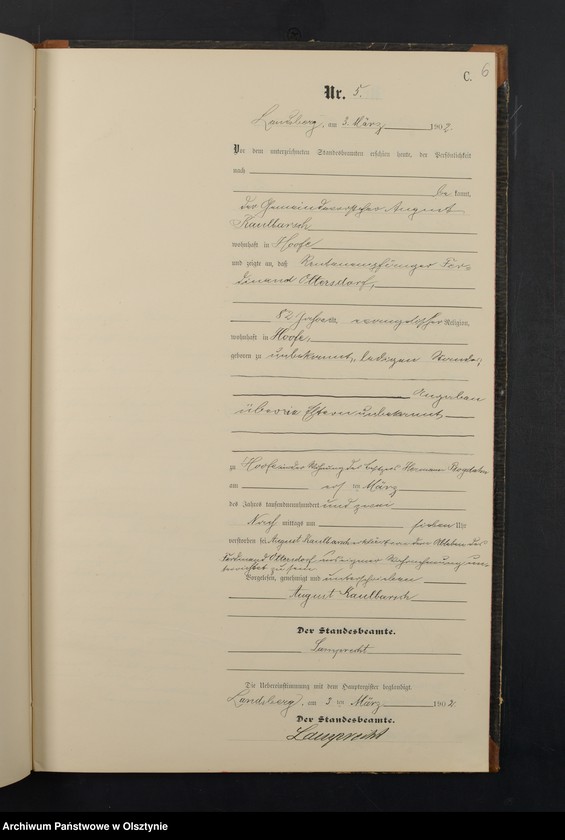 C. 6
Nr. 5.
Landsberg, am 3. März 1902.
Vor dem unterzeichneten Standesbeamten erschien heute, der Persönlichkeit
nach
be kannt,
der Gemeindevorsteher August
Kaulbarsch
wohnhaft in Hoofe
und zeigte an, daß Rentenempfänger Fer-
dinand Ottersdorf,
82 Jahre, evangelischer Religion,
wohnhaft in Hoofe,
geboren zu unbekannt, ledigen Standes,
Angaben
über die Eltern unbekannt
zu Hoofe in der Wohnung des Hermann
am ten März
des Jahres tausendneunhundert und zwei
Nach mittags um sieben Uhr
verstorben sei. August Kaulbarsch erklärt von dem Ableben des
Ferdinand Ottersdorf aus eigener Wissenschaft un-
terrichtet zu sein
Vorgelesen, genehmigt und unterschrieben
August Kaulbarsch
Der Standesbeamte.
Lamprecht
Die Uebereinstimmung mit dem Hauptregister beglaubigt.
Landsberg, am 3 ten März 1902.
Der Standesbeamte.
Lamprecht
Archiwum Państwowe w Olsztynie